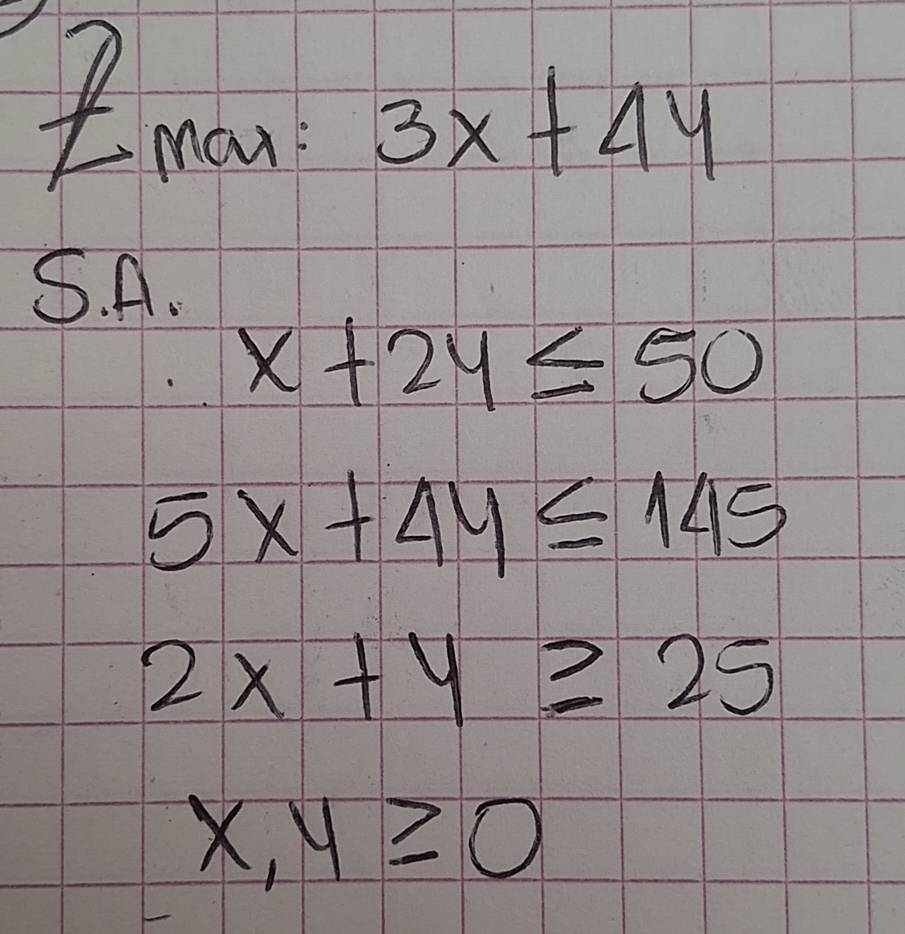 Z max: 3x + 4y
S.A.
x + 2y ≤ 50
5x + 4y ≤ 145
2x + y ≥ 25
x, y ≥ 0